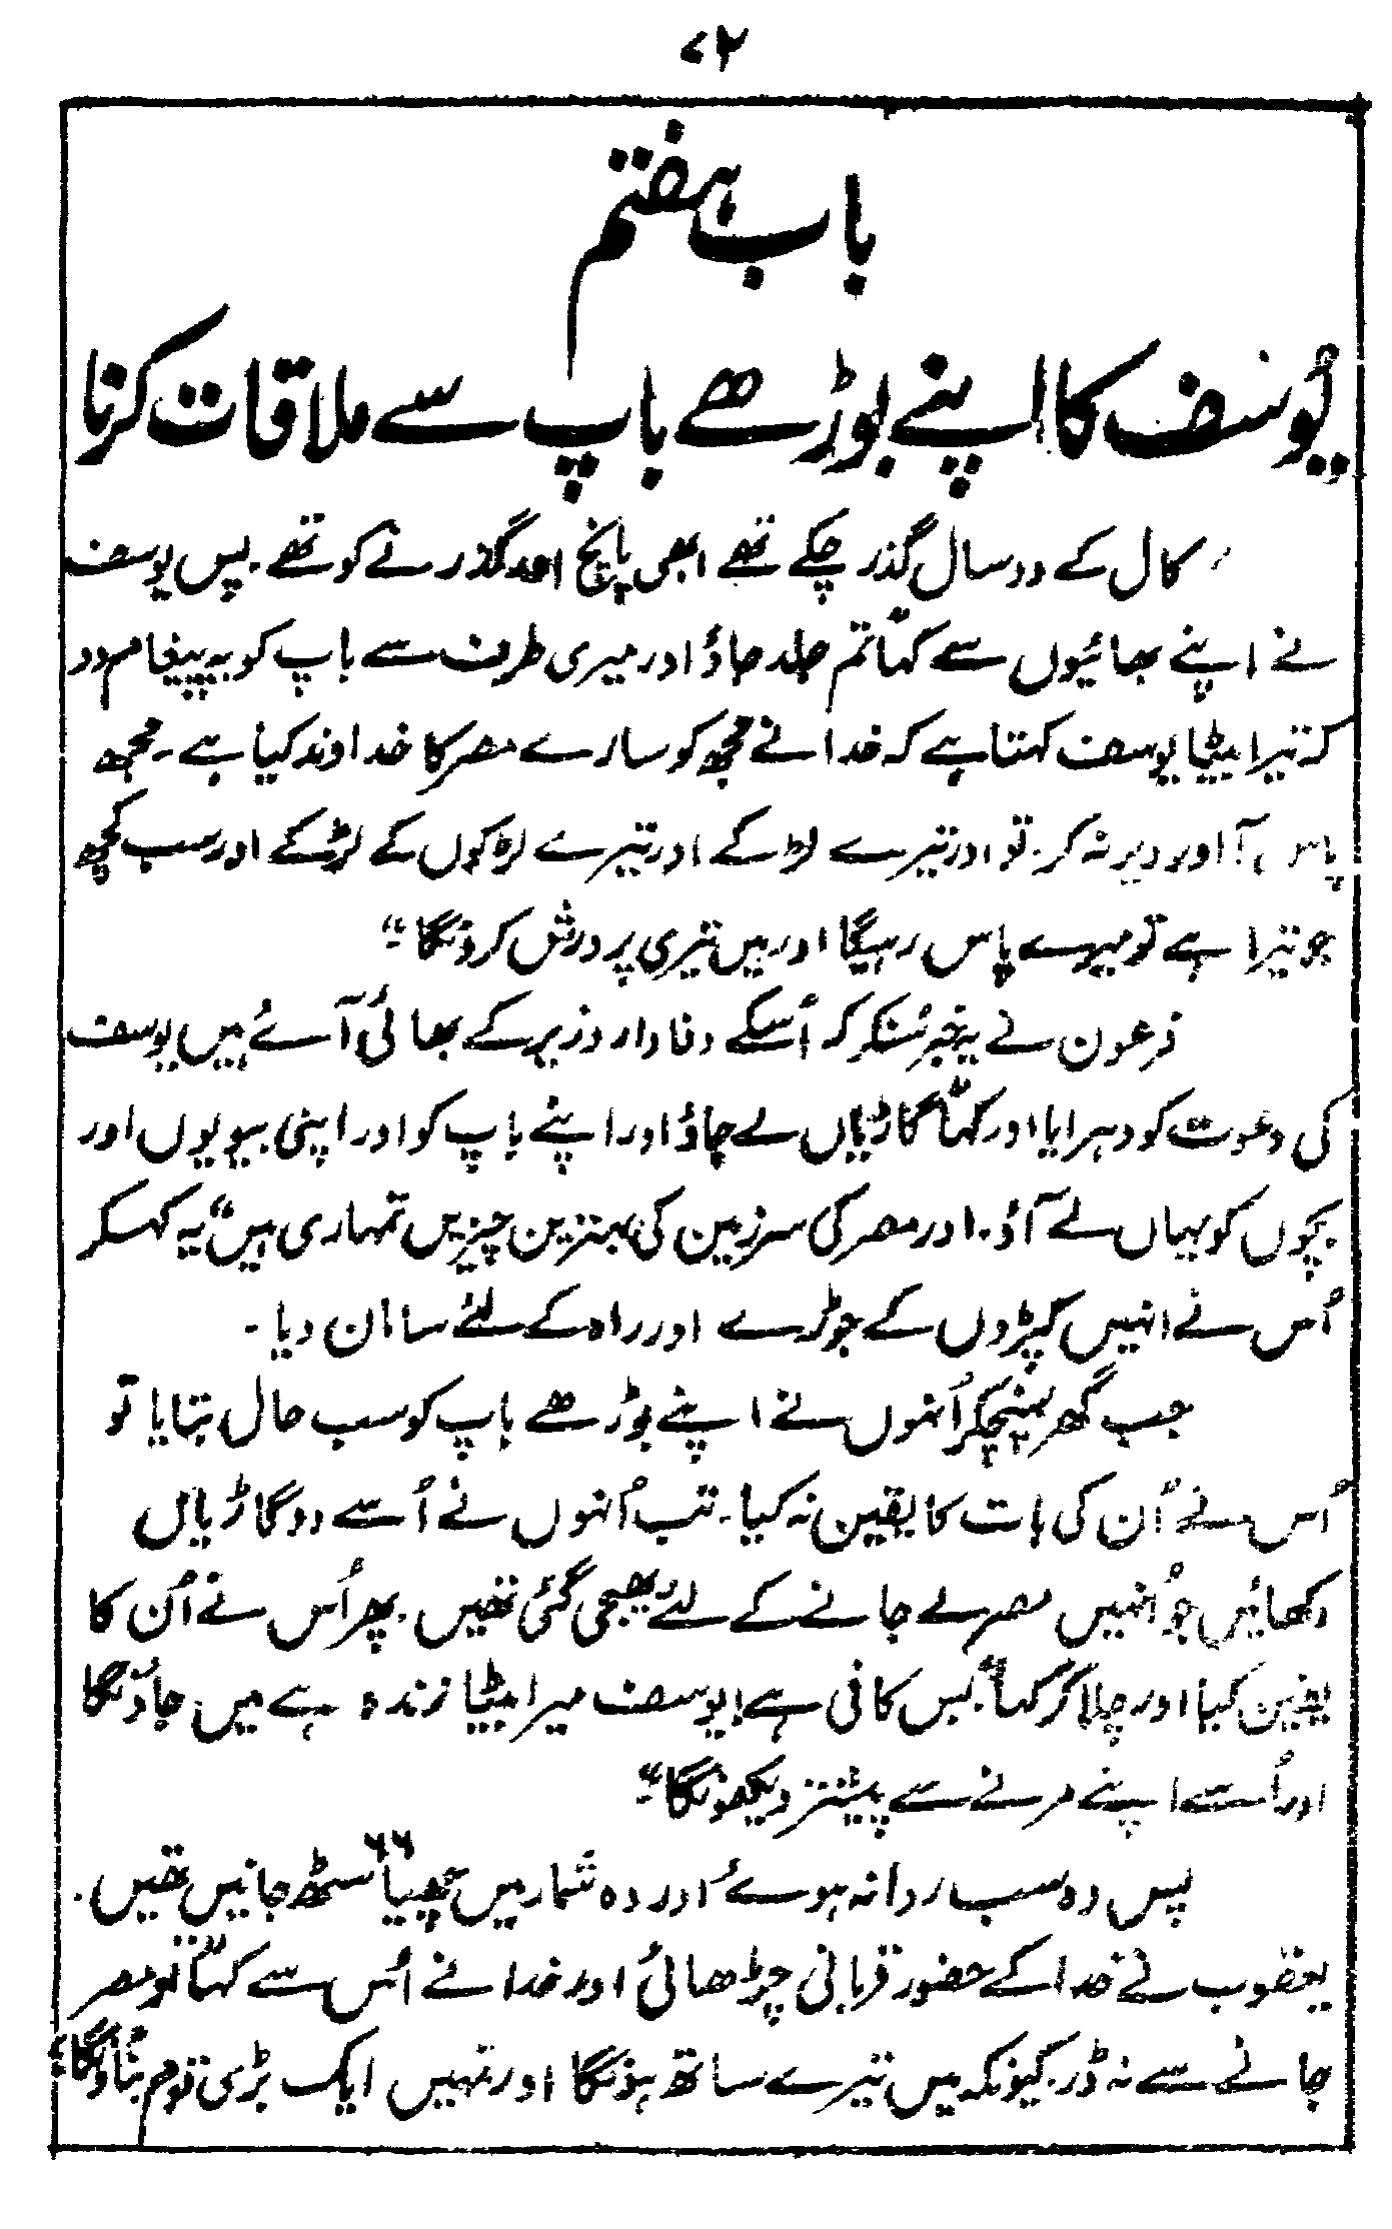 ۷۲
باب ہفتم
یُوسف کا اپنے بوڑھے باپ سے ملاقات کرنا
کال کے دو سال گذر چکے تھے ابھی پانچ اور گذرنے کو تھے۔ پس یوسف
نے اپنے بھائیوں سے کہا "تم جلد جاؤ اور میری طرف سے باپ کو یہ پیغام دو
کہ تیرا بیٹا یوسف کہتا ہے کہ خدا نے مجھ کو سارے مصر کا خداوند کیا ہے۔ مجھ
پاس آ اور دیر نہ کر۔ تو اور تیرے لڑکے اور تیرے لڑکوں کے لڑکے اور سب کچھ
جو تیرا ہے تو میرے پاس رہیگا اور میں تیری پرورش کرونگا۔"
فرعون نے یہ خبر سُنکر کہ اُسکے وفادار وزیر کے بھائی آئے ہیں یوسف
کی دعوت کو دہرایا اور کہا "گاڑیاں لے جاؤ اور اپنے باپ کو اور اپنی بیویوں اور
بچوں کو یہاں لے آؤ۔ اور مصر کی سرزمین کی بہترین چیزیں تمہاری ہیں" یہ کہکر
اُس نے انہیں کپڑوں کے جوڑے اور راہ کے لئے سامان دیا۔
جب گھر پہنچکر اُنہوں نے اپنے بوڑھے باپ کو سب حال بتایا تو
اُس نے اُن کی بات کا یقین نہ کیا۔ تب اُنہوں نے اُسے وہ گاڑیاں
دکھائیں جو اُنہیں مصر لے جانے کے لئے بھیجی گئی تھیں۔ پھر اُس نے اُن کا
یقین کیا اور چلا کر کہا "بس کافی ہے! یوسف میرا بیٹا زندہ ہے میں جاؤنگا
اور اُسے اپنے مرنے سے پیشتر دیکھونگا۔"
پس وہ سب روانہ ہوئے اور وہ شمار میں چھیاسٹھ ۶۶ جانیں تھیں۔
یعقوب نے خدا کے حضور قربانی چڑھائی اور خدا نے اُس سے کہا "تو مصر
جانے سے نہ ڈر۔ کیونکہ میں تیرے ساتھ ہونگا اور تمہیں ایک بڑی قوم بناؤنگا"